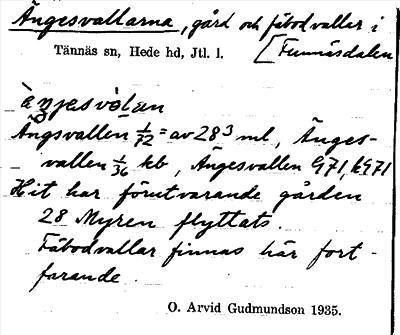 Ängesvallarna, gård och fäbodvallar i
Tännäs sn, Hede hd, Jtl. l. [Funnäsdalen
àŋjasvòlan
Ängsvallen 1/72 = av 28³ ml, Änges-
vallen 1/36 kb, Ängesvallen G71, kG71
Hit har förutvarande gården
28 Myren flyttats.
Fäbodvallar finnas här fort-
farande.
O. Arvid Gudmundson 1935.